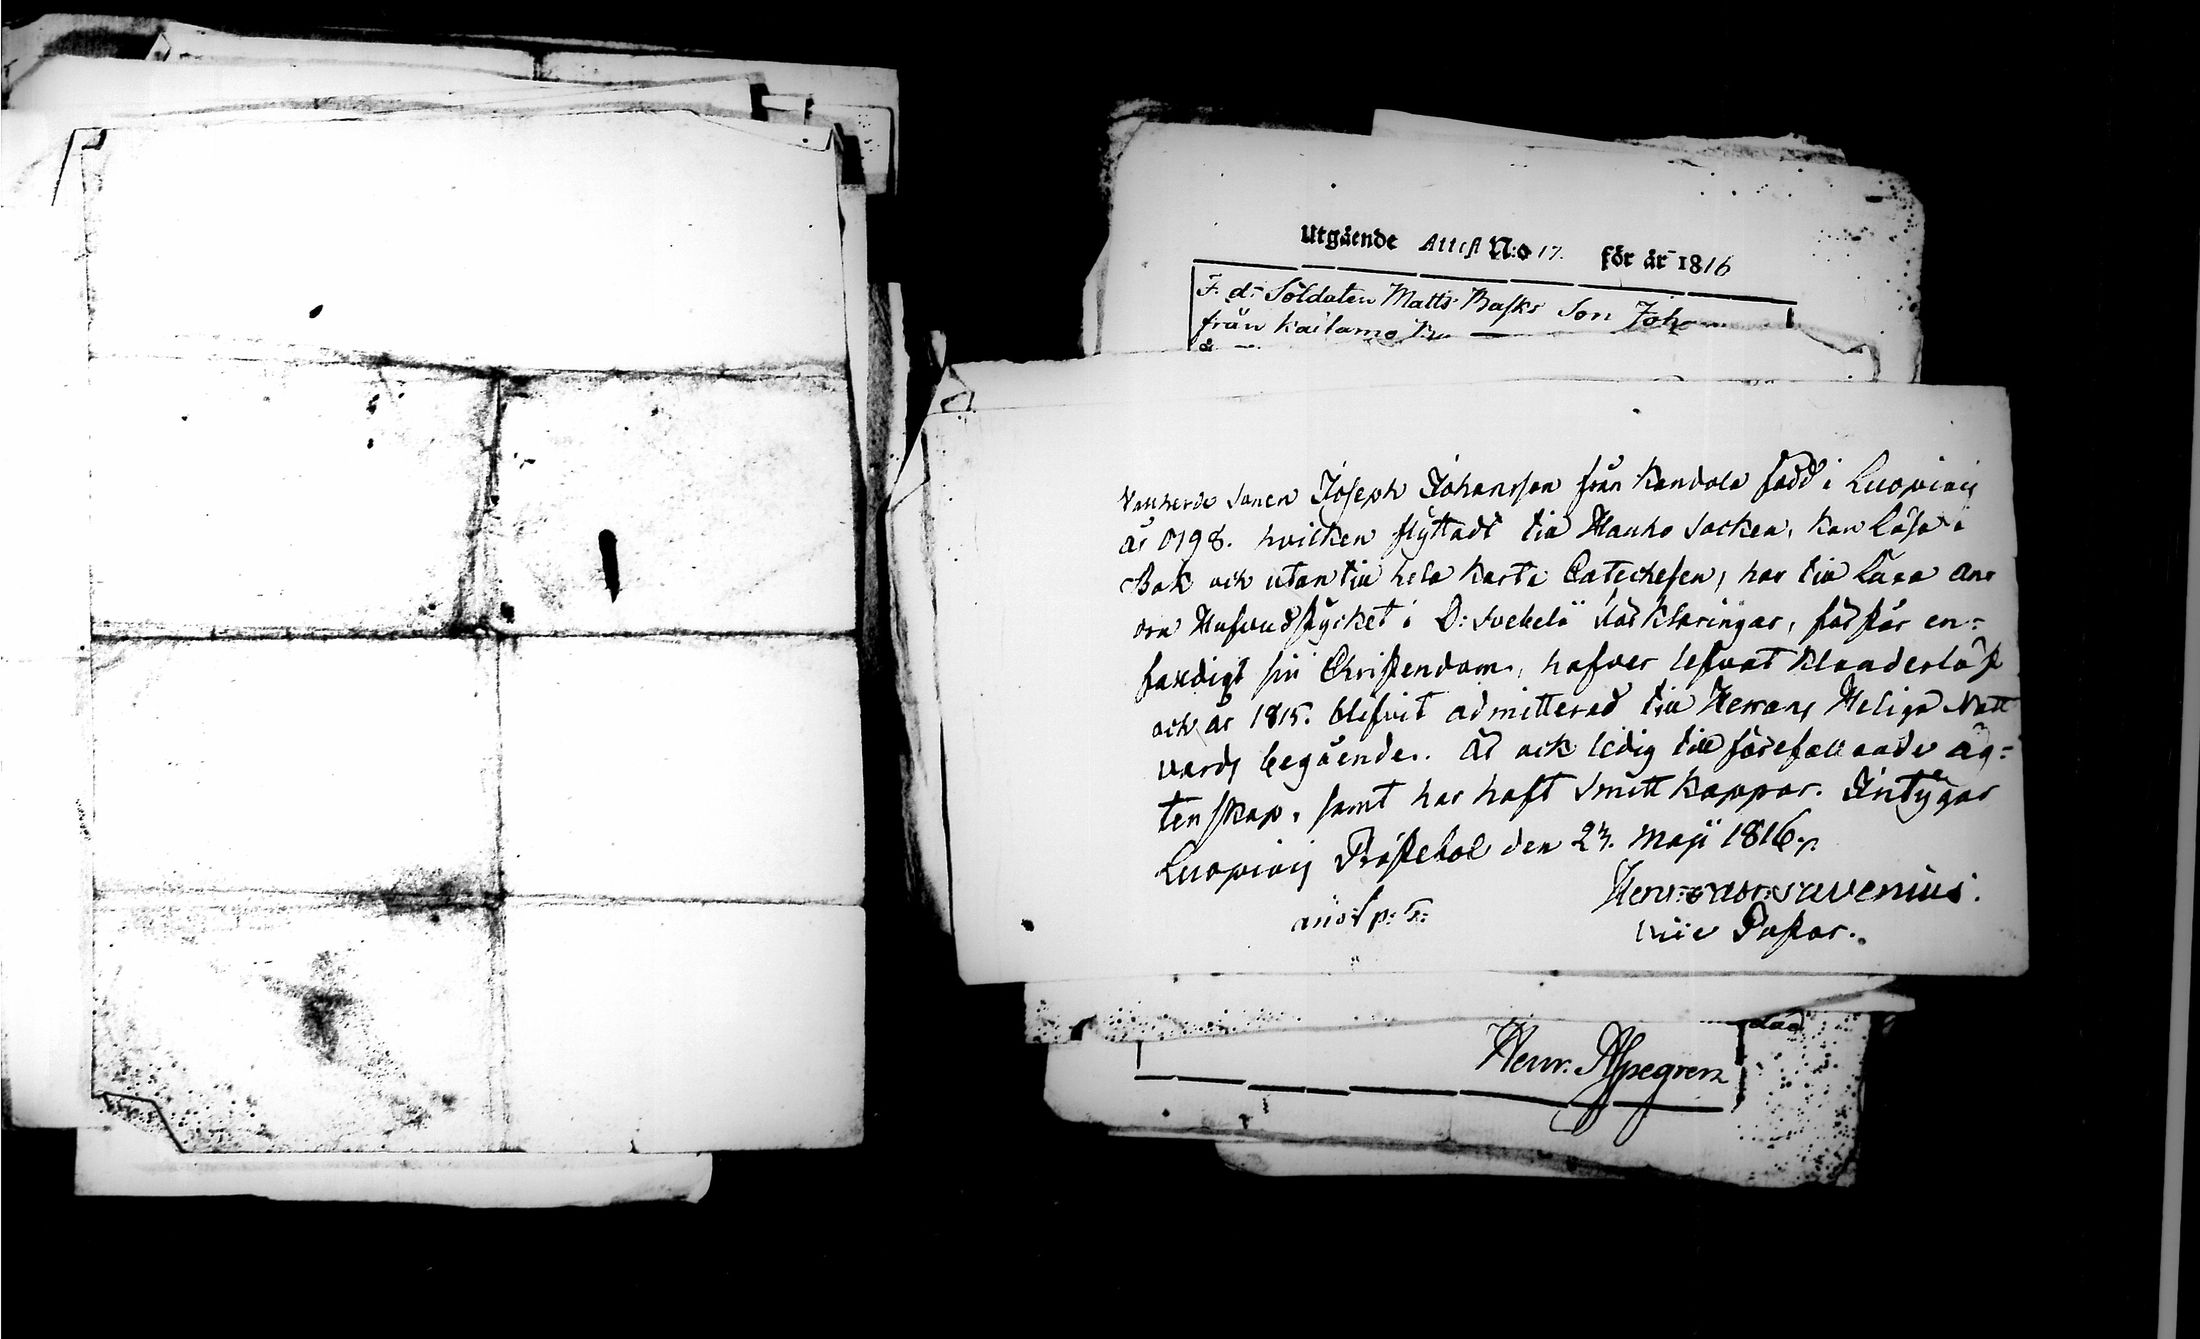 Utgående Attest N:o 17. för år 1816
F. d. Soldaten Matts Basks Son Joh
från Kailamo
sonen Joseph Johansson från Kandola född i Luopiois
år 1798. hvilken flyttadt till Hauho Socken, kan Läsa i
Bok och utantill hela Korta Catechesen, har till Lära And
ora Hufvudstycket i D: Svebelii Förklaringar, förstår en-
faldigt sin Christendom, hafver lefvat klanderlöst
och år 1815. blifvit admitterad till Herrans Heliga Natt
vards begående. Är ock ledig till förefallande äg-
tenskap, samt har haft Smitt Koppor. Intygar
Luopiois Prästebol den 23. Maji 1816.
vice Pastor.
Henr. Aspegren